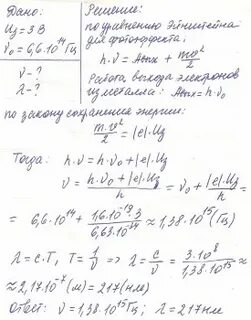 Дано:
Uз = 3 В
ν₀ = 6,6·10¹⁴ Гц
ν - ?
λ - ?
Решение:
по уравнению Эйнштейна
для фотоэффекта:
h·ν = Aвых + mv²/2
Работа выхода электронов
из металла: Aвых = h·ν₀
по закону сохранения энергии:
m·v²/2 = |e|·Uз
Тогда: h·ν = h·ν₀ + |e|·Uз
ν = (h·ν₀ + |e|·Uз)/h = ν₀ + |e|·Uз/h =
= 6,6·10¹⁴ + 1,6·10⁻¹⁹·3/6,63·10⁻³⁴ ≈ 1,38·10¹⁵ (Гц)
λ = c·T, T = 1/ν ⇒ λ = c/ν = 3·10⁸/1,38·10¹⁵ ≈
≈ 2,17·10⁻⁷ (м) = 217 (нм)
Ответ: ν = 1,38·10¹⁵ Гц; λ = 217 нм